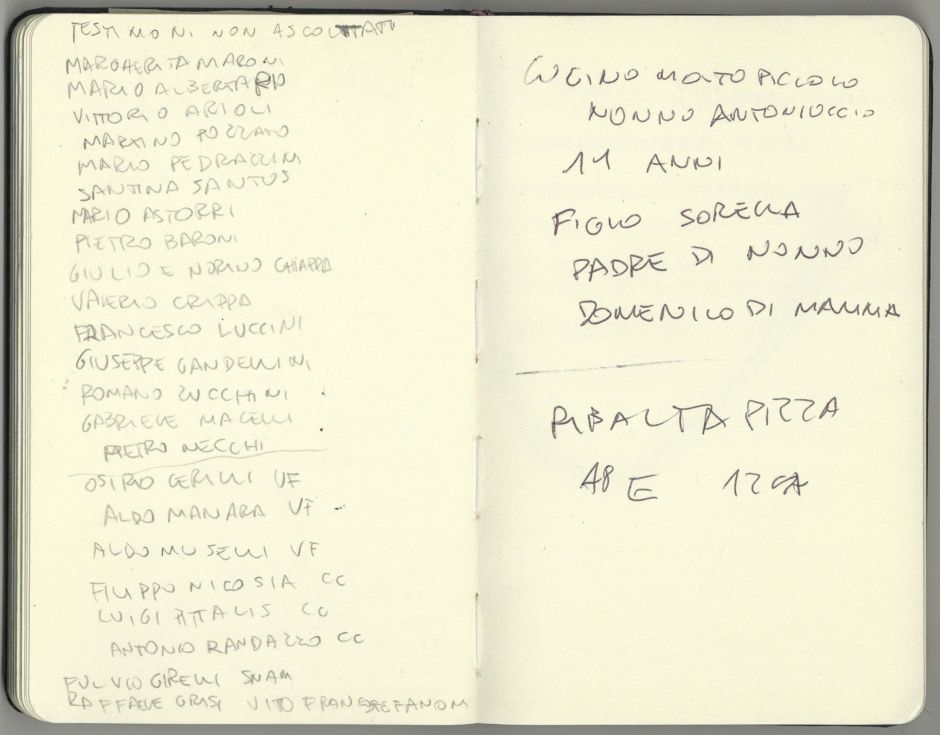 TESTIMONI NON ASCOLTATI
MARGHERITA MARONI
MARIO ALBERTARIO
VITTORIO ARIOLI
MARTINO POZZATO
MARIO PEDRAZZINI
SANTINA SANTUS
MARIO ASTORRI
PIETRO BARONI
GIULIO E NORINO CHIAPPA
VALERIO CRIPPA
FRANCESCO LUCCINI
GIUSEPPE GANDELLINI
ROMANO ZUCCHINI
GABRIELE MACELLI
PIETRO NECCHI
OSIRIO CERILLI VF
ALDO MANARA VF
ALDO MUSELLI VF
FILIPPO NICOSIA CC
LUIGI PITTALIS CC
ANTONIO RANDAZZO CC
FULVIO GIRELLI SNAM
RAFFAELE GRISI VITO FRANSTEFANONI
CUGINO MOLTO PICCOLO
NONNO ANTONIUCCIO
11 ANNI
FIGLIO SORELLA
PADRE DI NONNO
DOMENICO DI MAMMA
RIBALTA PIZZA
48 E 12